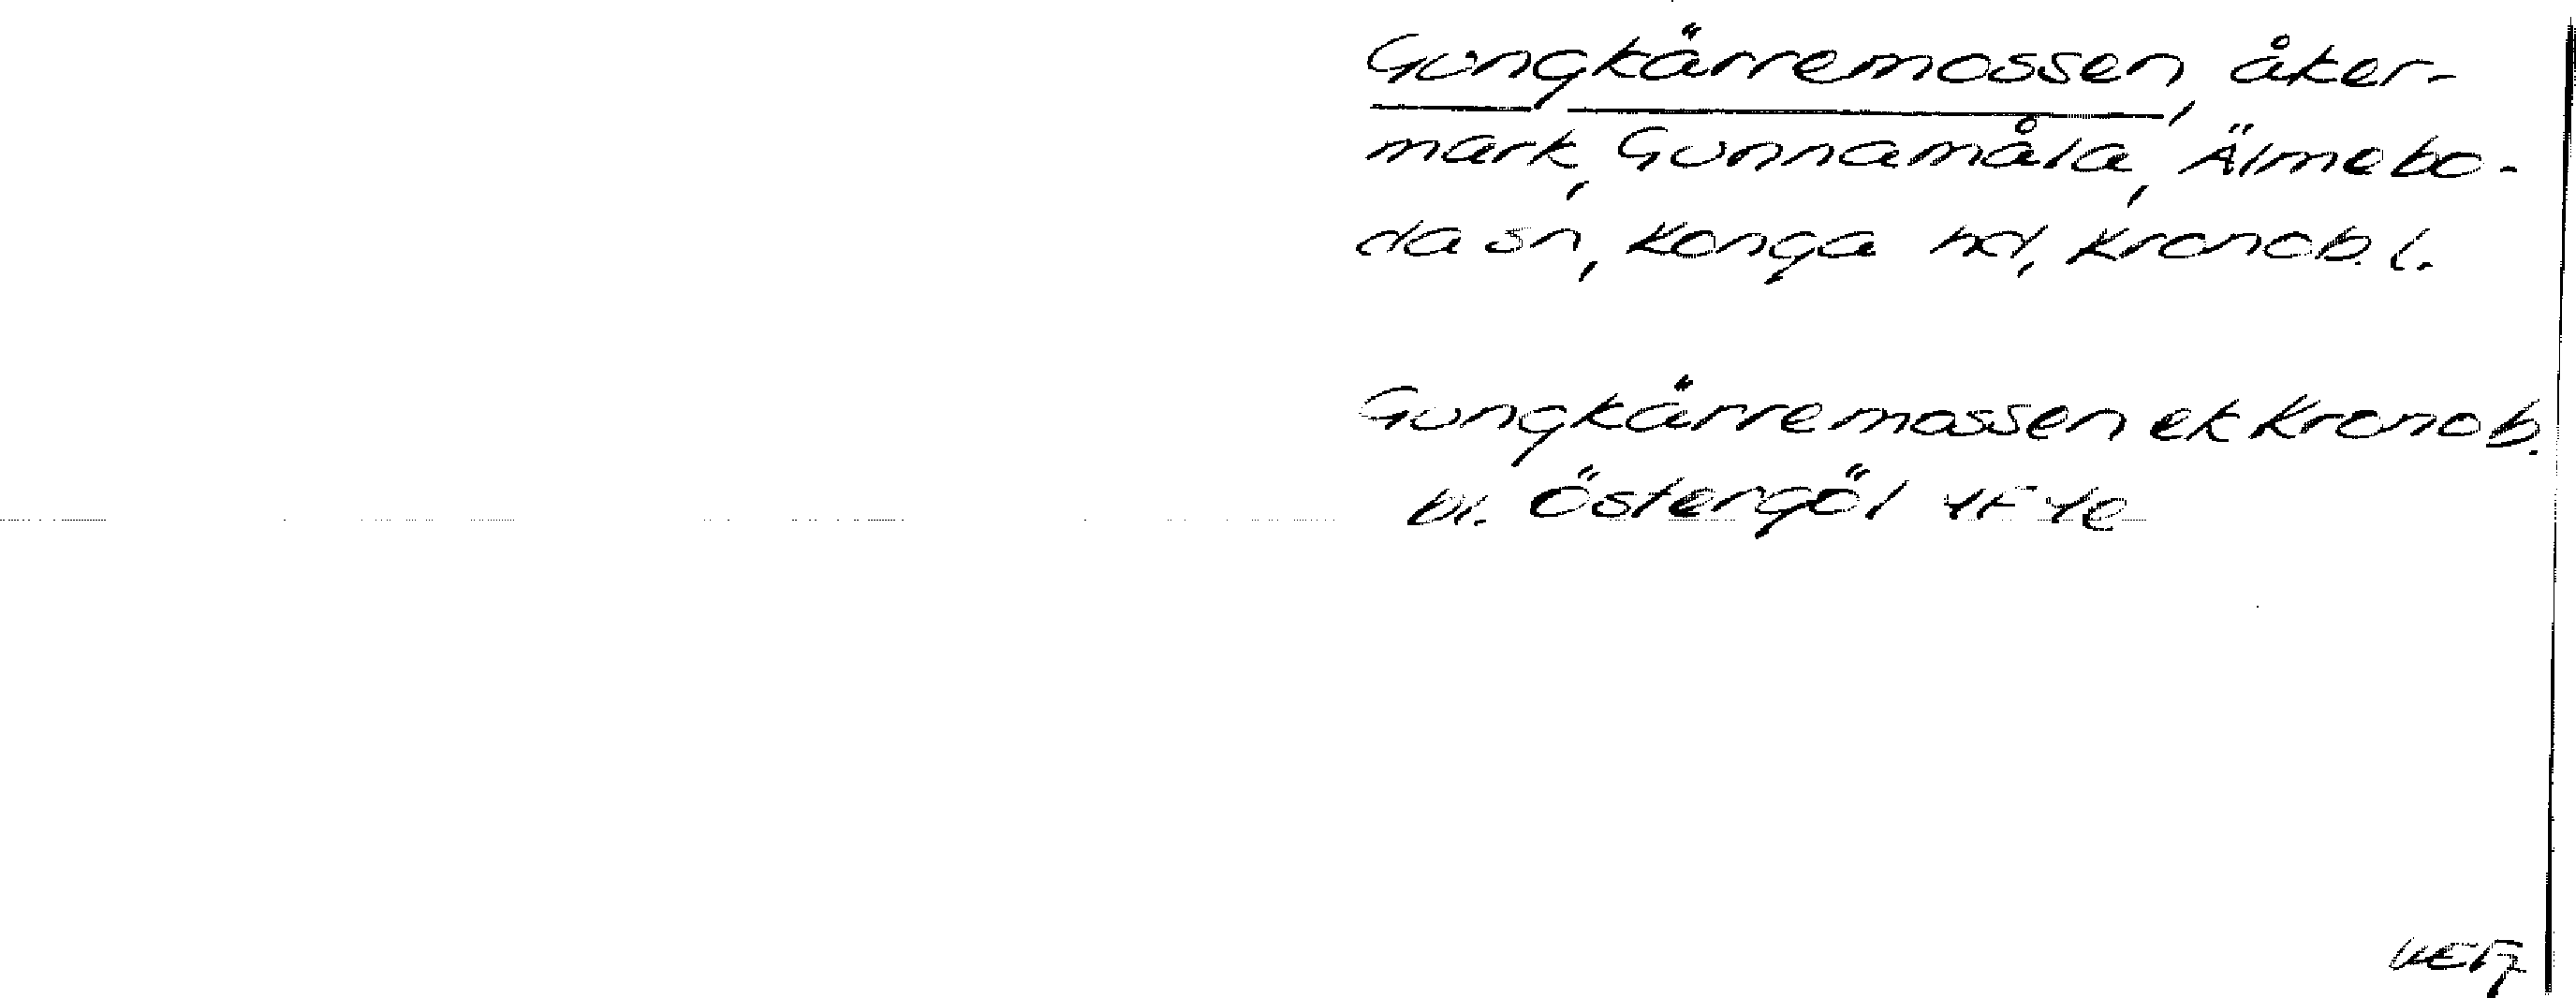 Gungkärremossen, åker-
mark, Gunnamåla, Älmebo-
da sn, Konga hd, Kronob. l.
Gungkärremossen ek Kronob.
bl. Östergöl 4F 4e